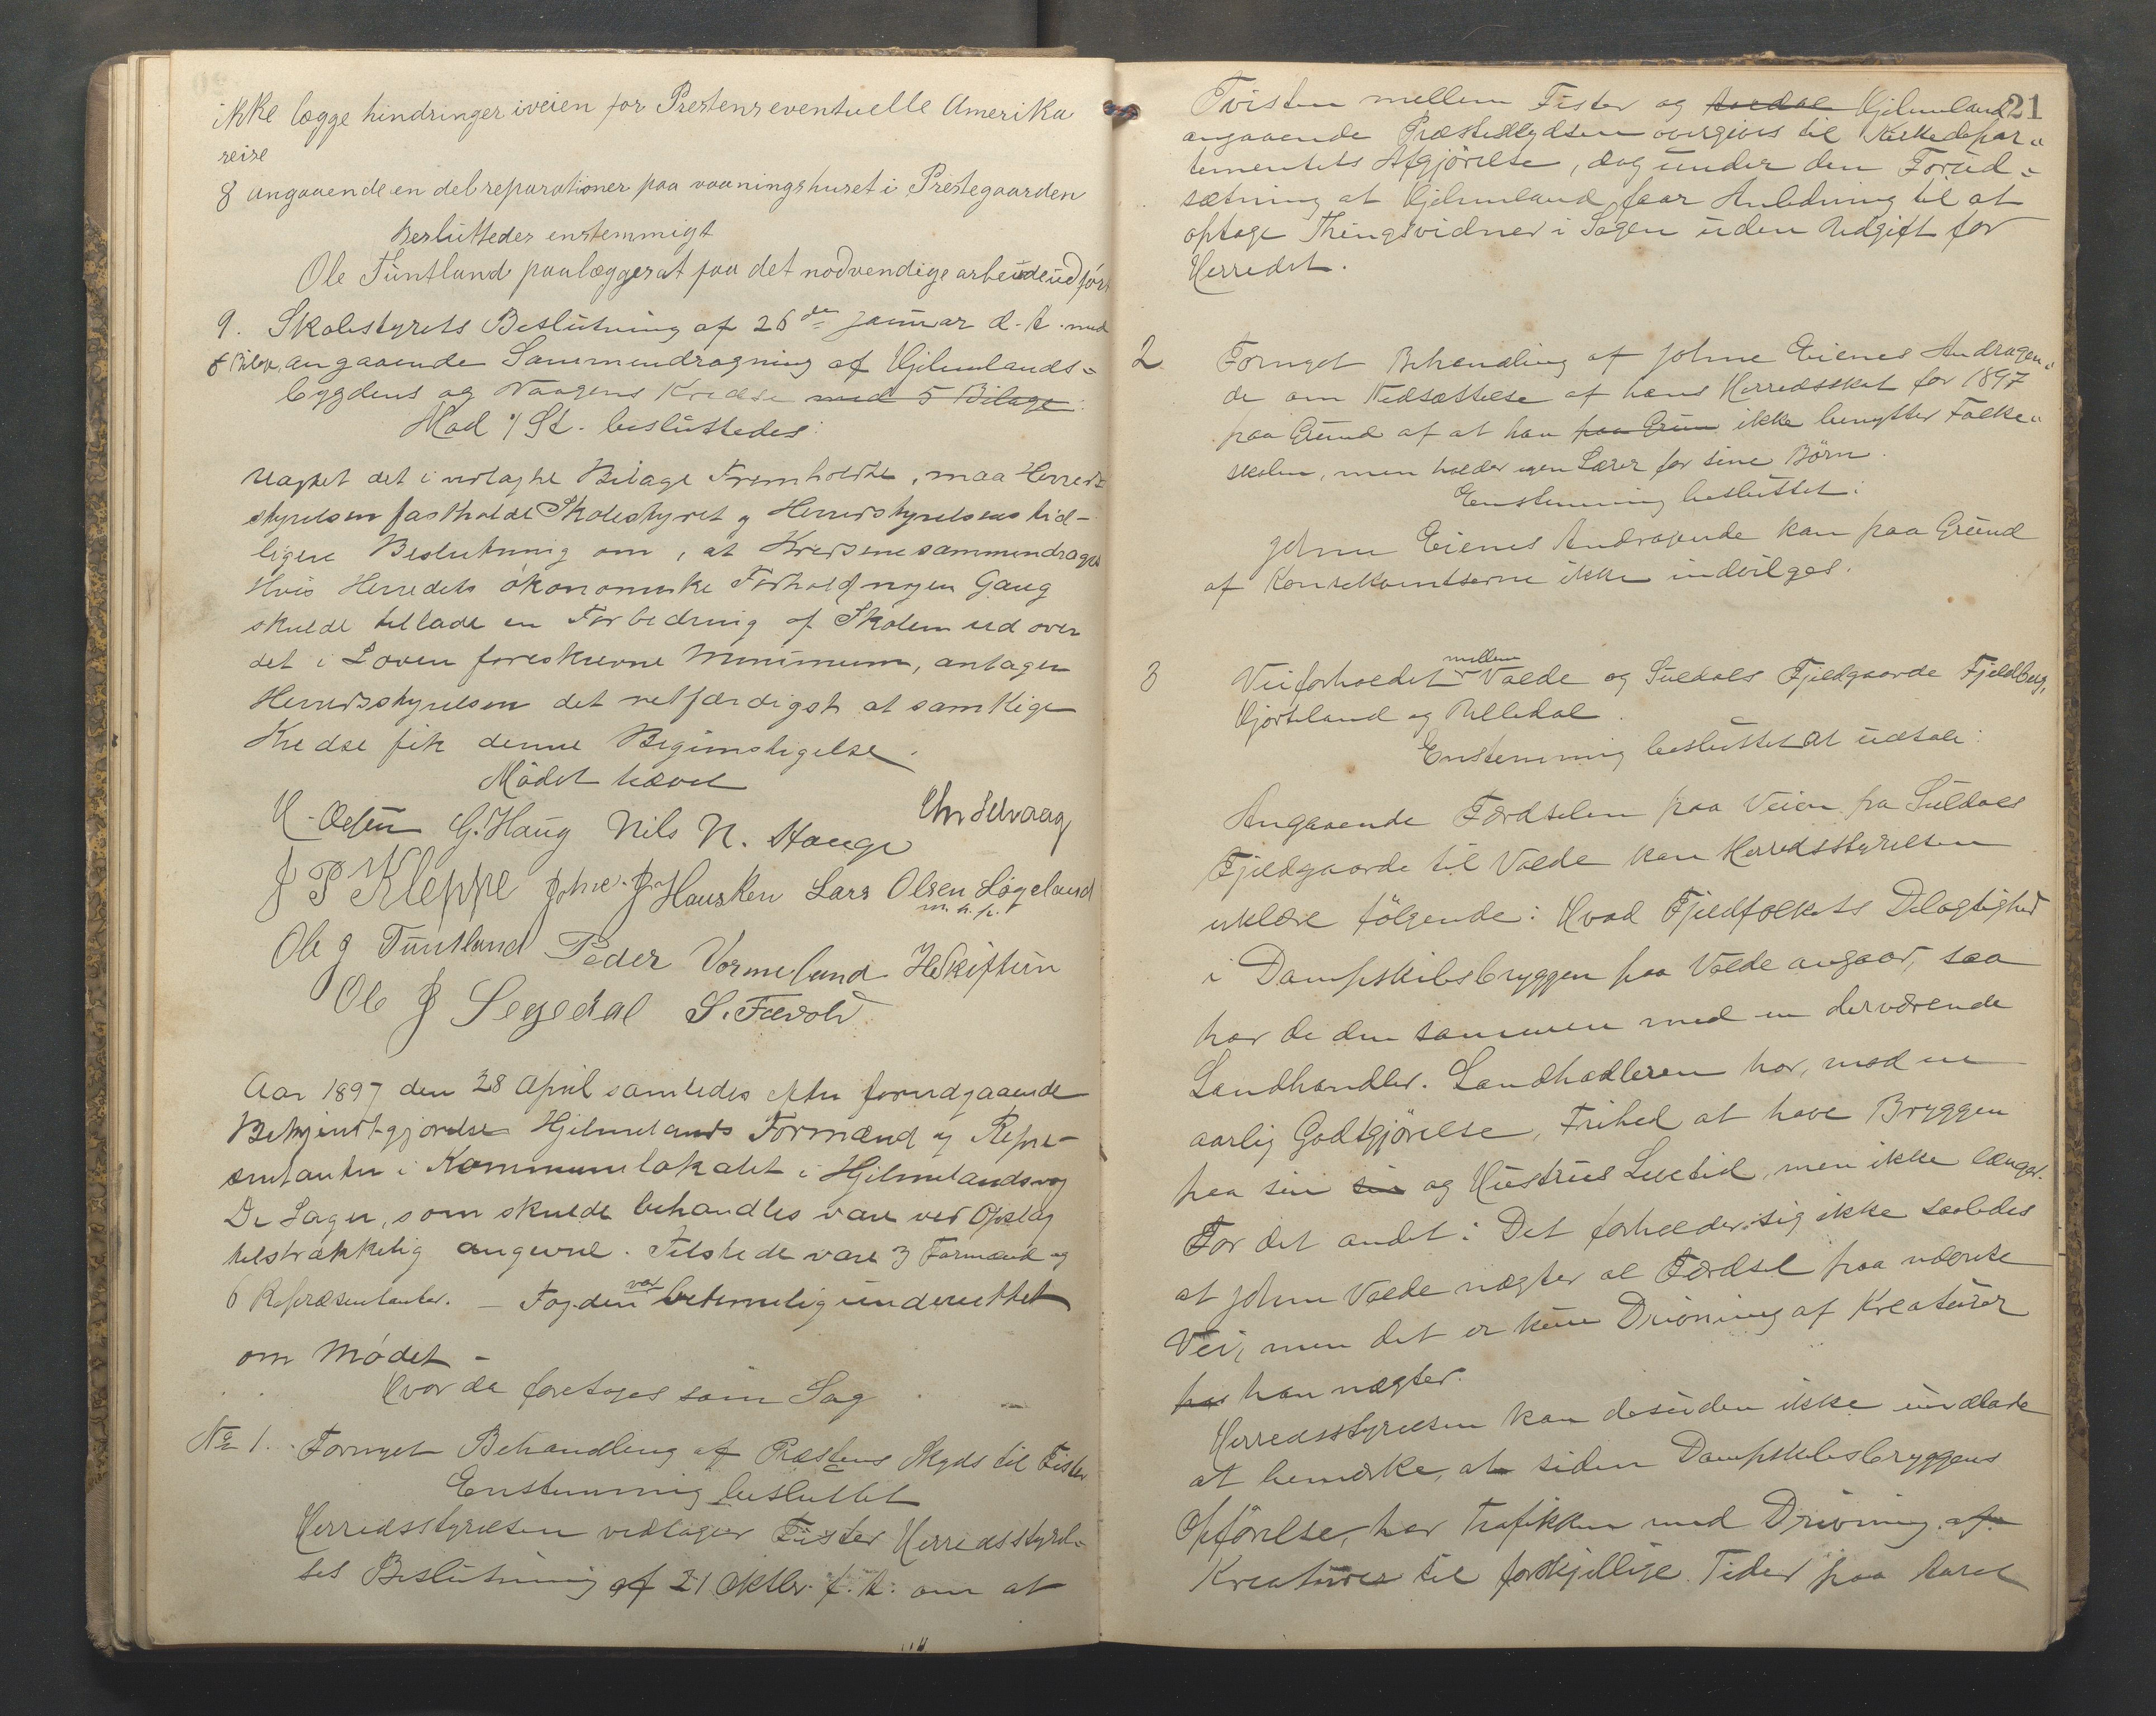 ikke lægge hindringer iveien for Prestens eventuelle Amerika
reise
8 angaaende en del reparationer paa vaaningshuset i Prestegaarden
Besluttedes enstemmigt
Ole Tuntland paalægges at faa det nødvendige arbeide udført
9. Skolestyrets Beslutning af 26de Januar d. A. med
8 Bilag, angaaende Sammendragning af Hjelmelands-
bygdens og Vaagens Kredse med 5 Bilage.
Mod 1 St. besluttedes:
Uagtet det i vedlagte Bilage Fremholdte, maa Herreds-
styrelsen fastholde Skolestyret og Herredstyrelsens tid-
ligere Beslutning om, at Kredsene sammendrages
Hvis Herredets økonomiske Forhold nogen Gang
skulde tillade en Forbedring af Skolen ud over
det i Loven foreskrevne Minimum, antager
Herredsstyrelsen det retfærdigst at samtlige
Kredse fik denne Begunstigelse.
Mødet hævet
G. Haug Nils N. Hauge Chr Selvaag
J P Kleppe Johne J. Hausken Lars Olsen Løgeland
m. p. p.
Ole J Tuntland Peder Vormeland H Skiftun
Ole J Segedal S. Fævold
Aar 1897 den 28 April samledes efter forudgaaende
Bekjendtgjørelse Hjelmelands Formænd og Repre-
sentanter i Kommunelokalet i Hjelmelandsvaag
De Sager, som skulde behandles vare ved Opslag
tilstrækkelig angivne. Tilstede vare 3 Formænd og
6 Repræsentanter. – Fogden var betimelig underrettet
om Mødet –
Hvor da foretoges som Sag
No 1. Fornyet Behandling af Præstens Skyds til Fister
Enstemmig besluttet
Herredsstyrelsen vedtager Fister Herredsstyrel-
ses Beslutning af 21 Oktbr. f. A. om at
21
Tvisten mellem Fister og Hjelmeland
angaaende Præsteskydsen overgives til Kirkedepar-
tementets Afgjørelse, dog under den Forud-
sætning at Hjelmeland faar Anledning til at
optage Thingsvidner i Sagen uden Udgift for
Herredet.
2 Fornyet Behandling af Johne Eienes Andragen-
de om Nedsættelse af hans Herredsskat for 1897
paa Grund af at han paa Grun ikke benytter Folke-
skolen, men holder egen Lærer for sine Børn.
Enstemmig besluttet:
Johne Eienes Andragende kan paa Grund
af Konsekventserne ikke indvilges.
3 Veiforholdet mellem Valde og Suldals Fjeldgaarde Fjeldberg,
Hjorteland og Ulledal.
Enstemmig besluttet at udtale:
Angaaende Færdselen paa Veien fra Suldals
Fjeldgaarde til Valde kan Herredsstyrelsen
erklære følgende: Hvad Fjeldfolkets Delagtighed
i Dampskibsbryggen paa Valde angaar, saa
har de den sammen med en derværende
Landhandler. Landhadleren har, mod en
aarlig Godtgjørelse, Frihed at have Bryggen
paa sin sin og Hustrues Levetid, men ikke længer.
For det andet: Det forholder sig ikke saaledes
at John Valde nægter al Færdsel paa nævnte
Vei, men det er kun Drivning af Kreaturer
has han nægter.
Herredsstyrelsen kan desuden ikke undlade
at bemærke, at siden Dampskibsbryggens
Opførelse, har Trafikken med Drivning af
Kreaturer til forskjellige Tider paa Aaret